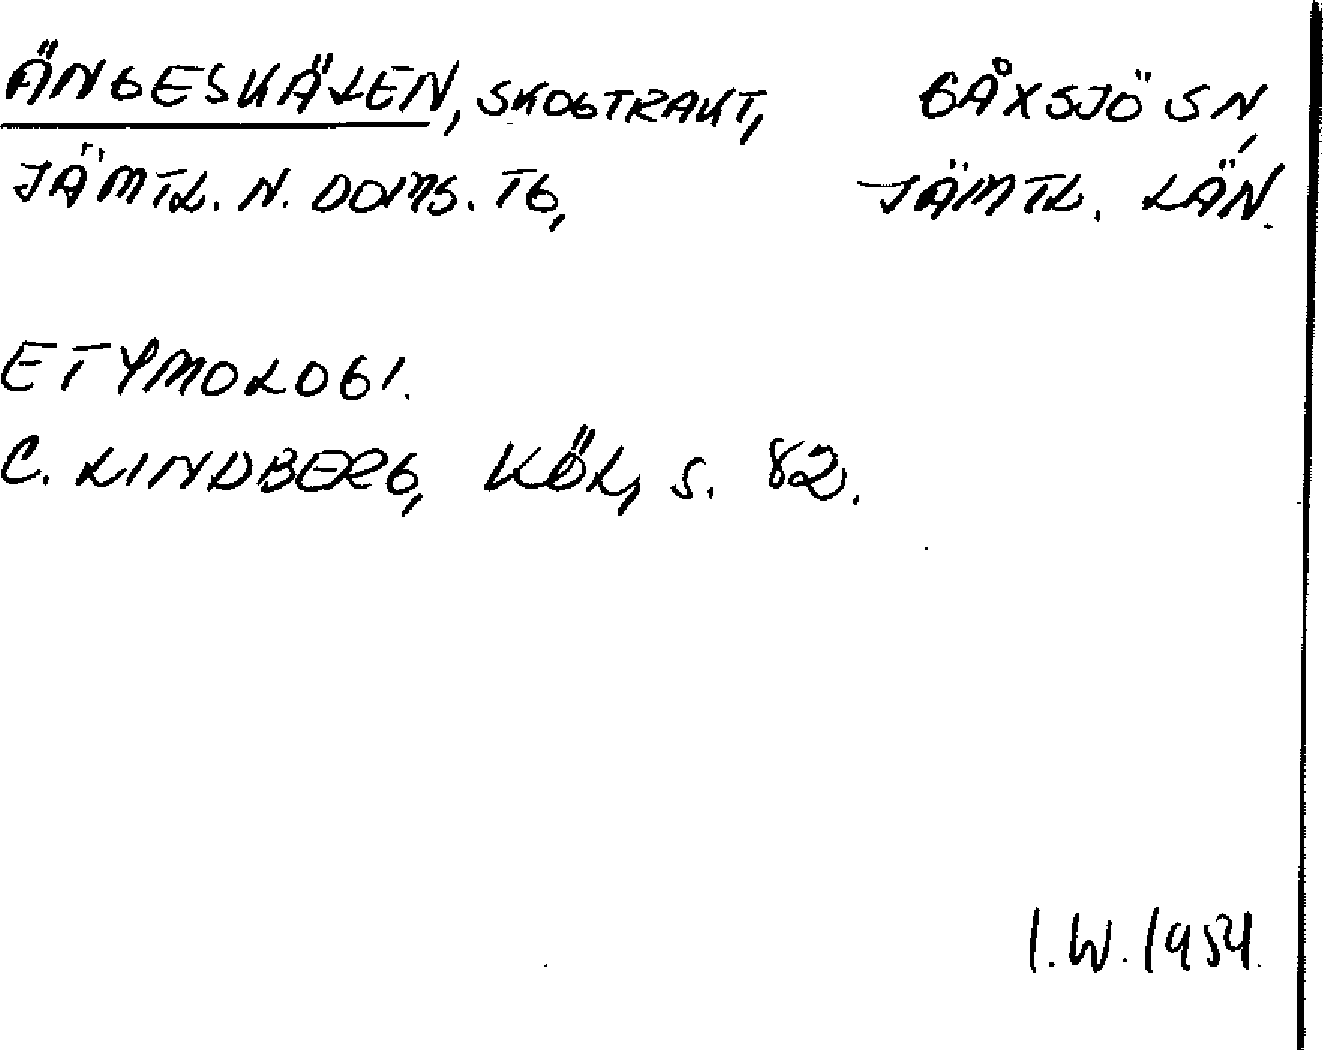 ÄNGESKÄLEN, SKOGTRAKT, GÅXSJÖ SN,
JÄMTL. N. DOMS. TG, JÄMTL. LÄN.
ETYMOLOGI.
C. LINDBERG, KÖL, S. 82.
I.W. 1954.